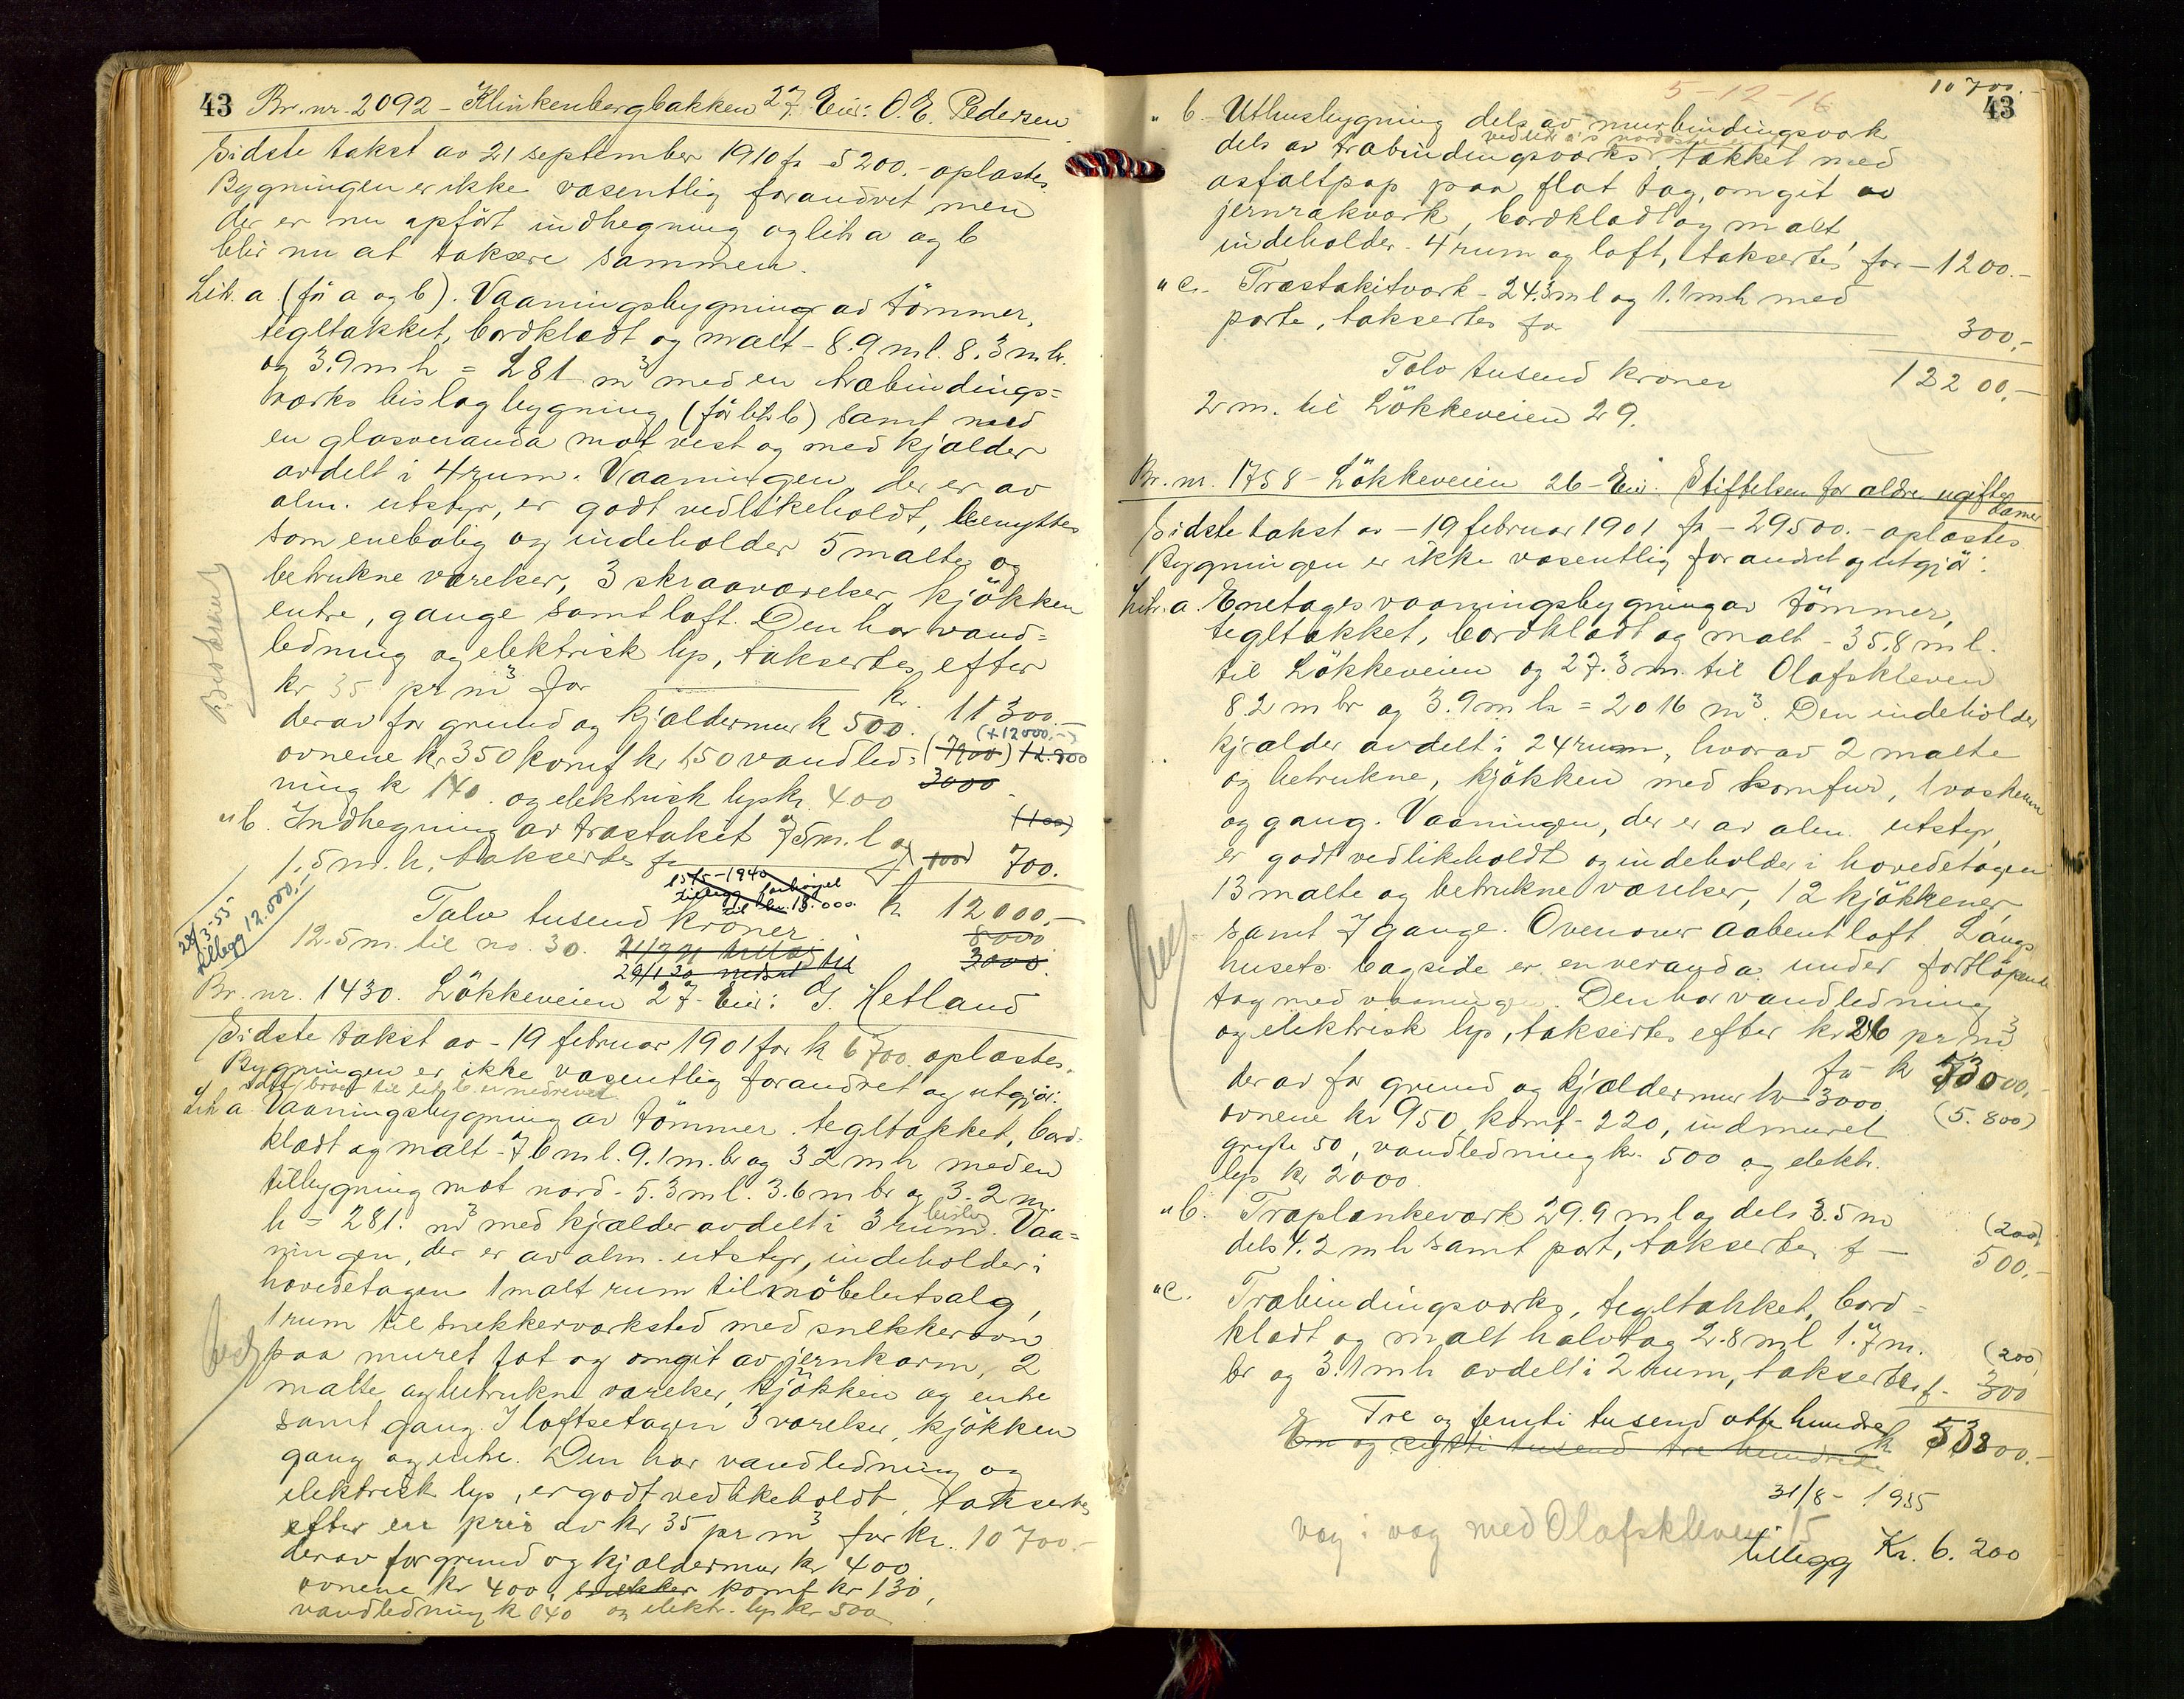 43 Br. nr. 2092 - Klinkenbergbakken 27. Eier: O. E. Pedersen
Sidste takst av 21 september 1910 fr 5200.- oplæstes.
Bygningen er ikke væsentlig forandret men
der er nu opført indhegning og lit a og b
blir nu at taksere sammen.
Lit. a (før a og b). Vaaningsbygning av tömmer,
tegltækket, bordklædt og malt - 8.9 m l. 8.3 m br.
og 3.9 m h = 281 m³ med en træbindings=
værks bislagbygning, (før lit b) samt med
en glasveranda mot vest og med kjælder
avdelt i 4 rum. Vaaningen, der er av
alm. utstyr, er godt vedlikeholdt, benyttes
som enebolig og indeholder 5 malte og
betrukne værelser, 3 skraaværelser, kjökken
entre, gange samt loft. Den har vand=
ledning og elektrisk lys, taksertes efter
kr 35 pr m³ for kr. 11300.-
derav for grund og kjældermur k 500. (+12000.-)
ovnene kr. 350 komf kr 150 vandled= (7900) 12.800
ning k 140. og elektrisk lys kr. 400 3000
" b. Indhegning av træstakit 75 m. l og (100)
1.5 m. h, taksertes for 100 700.
15/5-1940
tillegg forhöyet
til kr. 15.000.
Tolv tusend kroner k 12000,-
28/3-55
tillegg 12.000,-
12.5 m. til no. 30. 8000
29/1 30 nedsat til 3000.
Br. nr. 1430. Lökkeveien 27- Eier: G. Hetland
Sidste takst av - 19 februar 1901 for k 6700. oplæstes.
Bygningen er ikke væsentlig forandret og utgjör:
Lit a. Vaaningsbygning av tömmer. tegltækket, bord=
klædt og malt - 7.6 m l. 9.1 m. br og 3.2 m h med en
tilbygning mot nord - 5.3 m l. 3.6 m br og 3.2 m
h = 281. m³ med kjælder avdelt i 3 rum. Vaa=
ningen, der er av alm. utstyr, indeholder i
hovedetagen 1 malt rum til möbelutsalg,
1 rum til snekkerverksted med snekkerovn
paa muret fot og omgit av jernkarm, 2
malte og betrukne værelser, kjökken og entre
samt gang. I loftsetagen 3 værelser, kjökken
gang og entre. Den har vandledning og
elektrisk lys, er godt vedlikeholdt, taksertes
efter en pris av kr 35 pr m³ for kr. 10700.-
derav for grund og kjældermur kr 400
ovnene kr 400, snekker komf kr 130,
vandledning k 140 og elektr. lys kr 500
10700.-
5-12-16
43
" b. Uthusbygning dels av murbindingsverk
dels av træbindingsverks, tækket med
asfaltpap paa flat tag, omgit av
jernrækverk, bordklædt og malt,
indeholder 4 rum og loft, taksertes for - 1200.-
" c. Træstakitverk - 24.3 m l og 1.1 m h med
porte, taksertes for 300,-
Tolv tusend kroner 12200,-
2 m. til Lökkeveien 29.
Br. nr. 1758 - Lökkeveien 26 - Eier. Stiftelsen for ældre ugifte
damer
Sidste takst av - 19 februar 1901 fr - 29500.- oplæstes
Bygningen er ikke væsentlig forandret og utgjör:
Lit. a. Enetages vaaningsbygning av tömmer,
tegltækket, bordklædt og malt - 35.8 m l.
til Lökkeveien og 27.3 m. til Olafskleven
8.2 m br og 3.9 m h = 2016 m³. Den indeholder
kjælder avdelt i 24 rum, hvorav 2 malte
og betrukne, kjökken med komfur, 1 vaskerum
og gang. Vaaningen, der er av alm. utstyr,
er godt vedlikeholdt og indeholder i hovedetagen
13 malte og betrukne værelser, 12 kjökkener
samt 7 gange. Ovenover aabent loft. Langs
husets bagside er en veranda under fortlöpende
tag med vaaningen. Den har vandledning
og elektrisk lys, taksertes efter kr 26 pr m³
for k 53000,-
derav for grund og kjældermur kr 3000 (5.800)
ovnene kr 950, komf - 220, indmuret
gryte 50, vandledning kr. 500 og elektr.
lys kr 2000.
" b. Træplankeverk 29.9 m l og dels 3.5 m (200)
dels 4.2 m h samt port, taksertes f - 500,-
" c. Træbindingsverks, tegltækket, bord=
klædt og malt halvtag 2.8 m l 1.7 m. (200)
br og 3.1 m h avdelt i 2 rum, taksertes f - 300
Tre og femti tusend otte hundrede k 53800.-
En og sytti tusend tre hundrede
31/8 - 1935
væg i væg med Olafskleven 15
tillegg Kr. 6.200